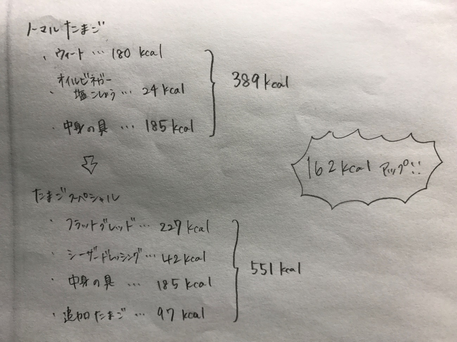 ノーマルたまご
・ウィート … 180 kcal
オイルビネガー
・塩こしょう … 24 kcal
・中身の具 … 185 kcal
389 kcal
162 kcal アップ!!
たまごスペシャル
・フラットブレッド … 227 kcal
・シーザードレッシング … 42 kcal
・中身の具 … 185 kcal
・追加たまご … 97 kcal
551 kcal